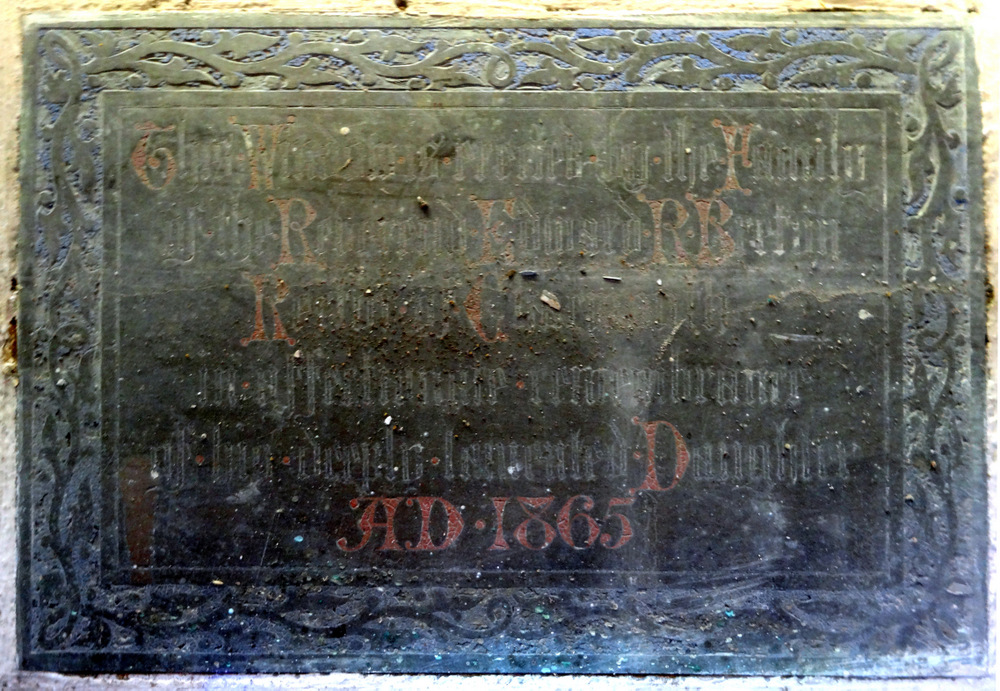 This · Window · is · erected · by · the · Family
of · the · Reverend Edward R · B
Rector · of
in · affectionate · remembrance
of · his · deeply · lamented · Daughter
AD · 1865